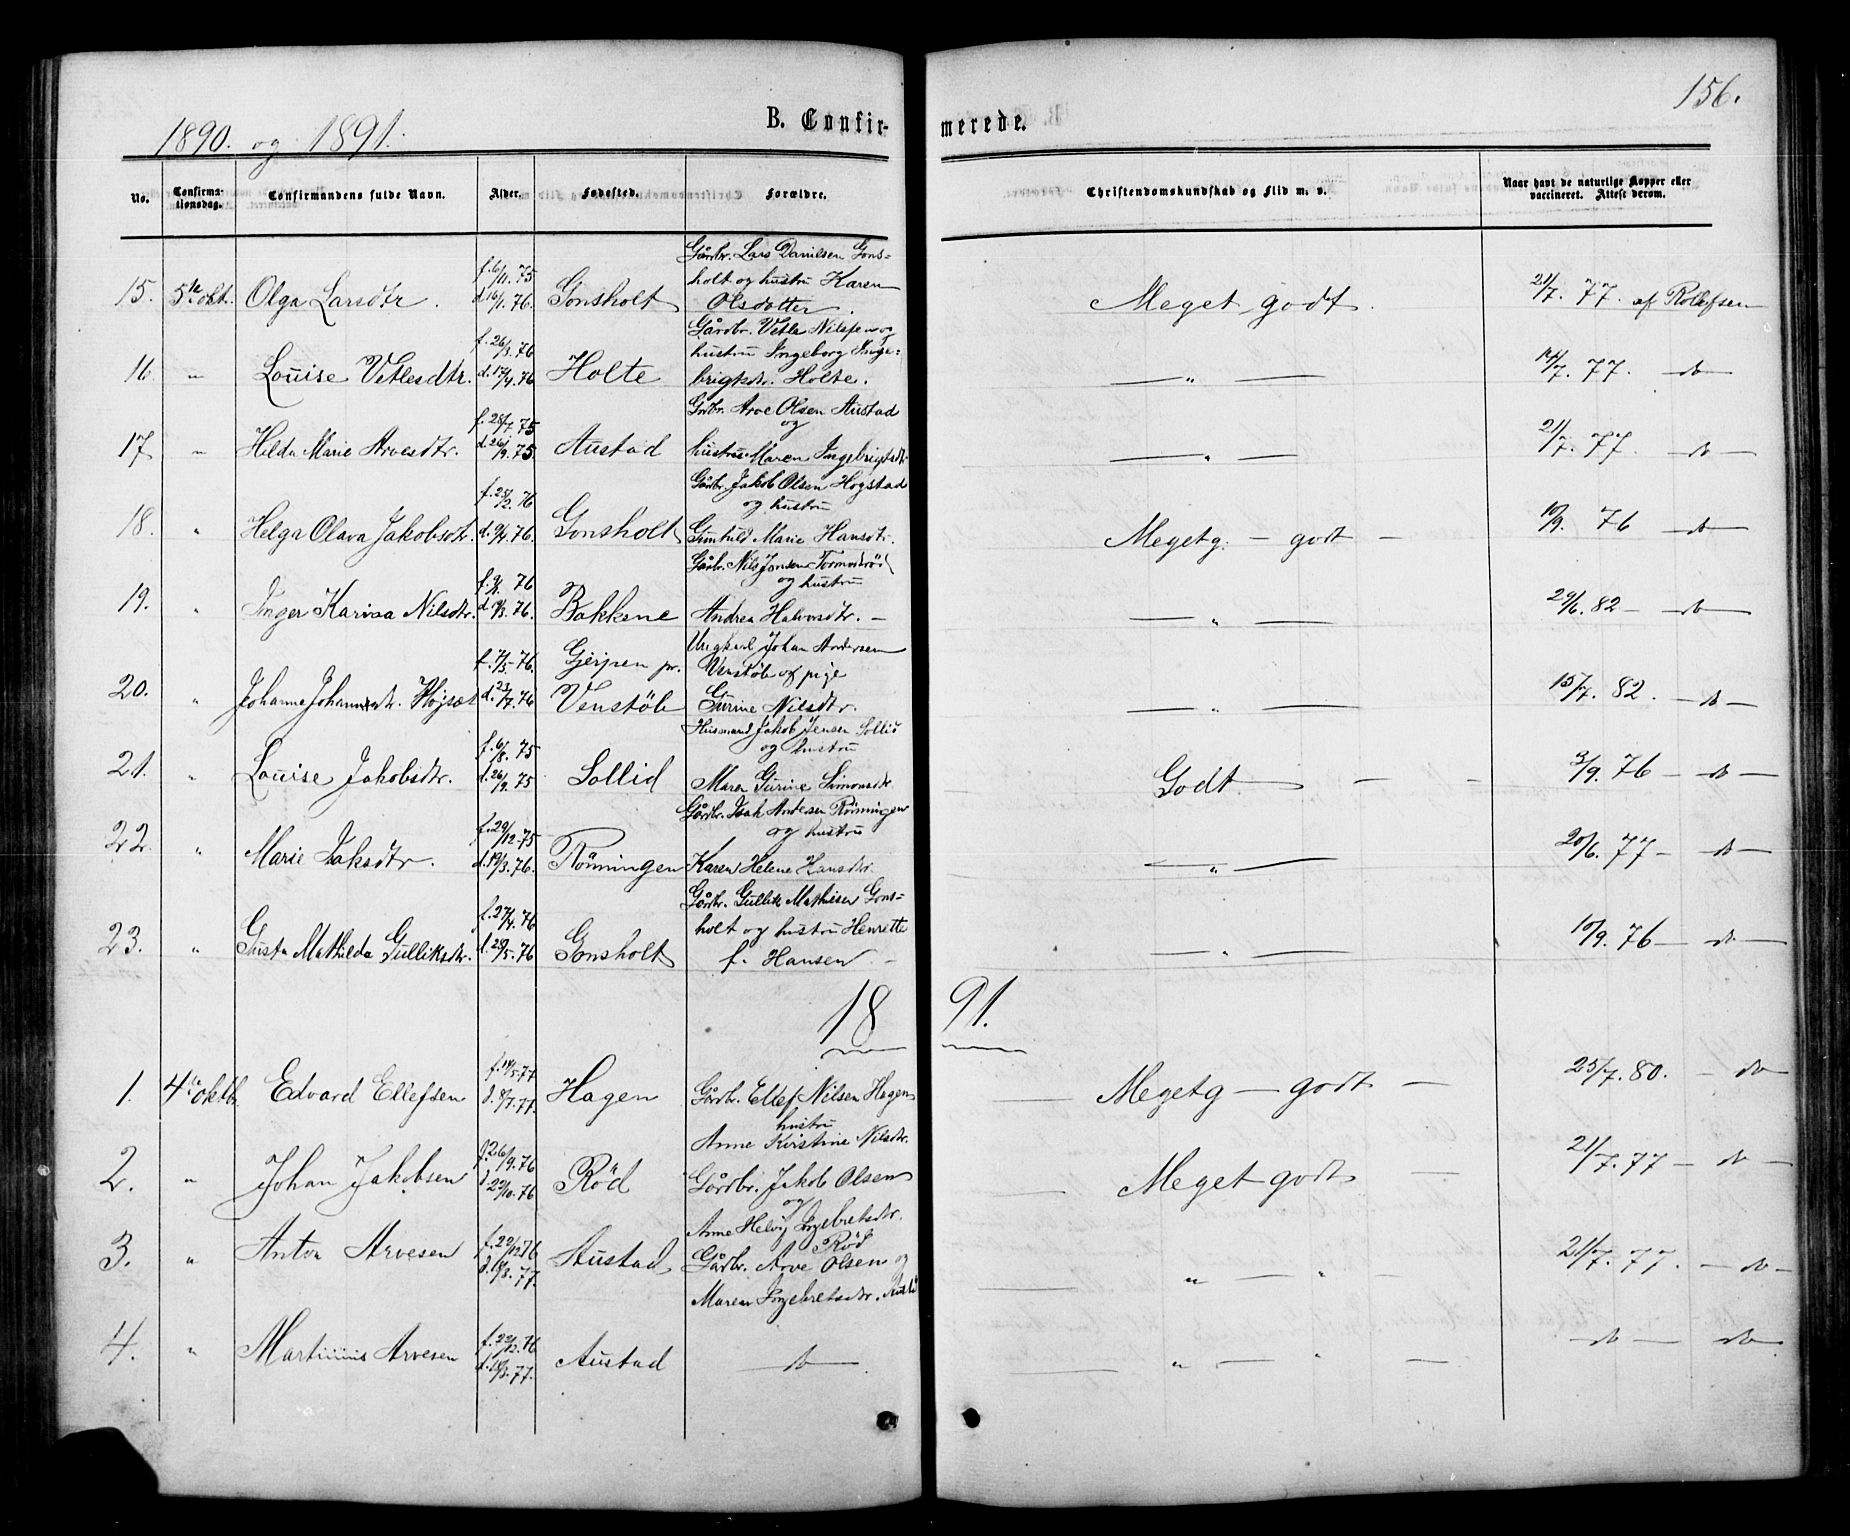 156.
1890. og 1891.
B. Confirmerede.
No. Confirmationsdag. Confirmandens fulde Navn. Alder. Fødested. Forældre. Christendomskundskab og Flid m. v. Naar havt de naturlige Kopper eller vaccineret. Attest derom.
Gårdbr. Lars Danilsen Gons-
f. 6/11. 75 holt og hustru Karen 21/7. 77 af Rollefsen
15. 5te okt. Olga Larsdtr. d. 16/1. 76. Gonsholt Olsdatter. Meget godt.
f. 26/3. 76 Gårdbr. Vetle Nilssen og
hustru Ingeborg Inge-
16. " Louise Vetlesdtr. d. 17/4. 76 Holte brigtsdtr. Holte. — " — 14/7. 77. do
f. 28/7. 75 Grbr. Arve Olsen Austad
og
17. " Hilda Marie Arvesdtr. d. 26/9. 75 Austad hustru Maren Ingebrigtsdtr — " — 21/7. 77. do
f. 28/2. 76 Gårdbr. Jakob Olsen Hogstad
og hustru
18. " Helga Olava Jakobsdtr. d. 9/4. 76. Gonsholt Gunhild Marie Hansdtr. Megetg. — godt — 10/9. 76 do
Gårbr. Nils Jonsen Tormodsrød
f. 9/1. 76 og hustru
19. " Inger Karina Nilsdtr. d. 19/3. 76. Bakkene Andrea Halvorsdtr. — — " — 29/6. 82 — do
Ungkarl Johan Andersen
f. 7/5. 76. Gjerpen pr. Venstøb og pige
20. " Johanne Johannesdtr. Højset d. 23/7. 76 Venstøb Gurine Nilsdtr. — " — 15/7. 82. — do —
Husmand Jakob Jensen Sollid
f. 6/8. 75 og hustru
21. " Louise Jakobsdtr. d. 26/9. 75 Sollid Maren Gurine Simonsdtr Godt — — 3/9. 76 — do —
Gårdbr. Isak Andersen Rønningen
f. 29/12. 75 og hustru
22. " Marie Isaksdtr. d. 19/3. 76. Rønningen Karen Helene Hansdtr. — " — 20/6. 77 — do —
Gårbr. Gullik Mathisen Gons-
f. 27/4. 76 holt og hustru Henrette
23. " Gusta Mathilda Gulliksdtr. d. 28/5. 76 Gonsholt f. Hansen — — " — 10/9. 76 — do —
1891.
f. 14/5. 77
1. 4de oktb. Edvard Ellefsen d. 8/7. 77. Hagen Gårdbr. Ellef Nilsen Hagen — Megetg — godt — 25/7. 80. — do
hustru
Anne Kirstine Nilsdtr.
f. 26/9. 76
2. " Johan Jakobsen d. 22/10. 76 Rød Gårdbr. Jakob Olsen — Meget godt — 21/7. 77 — do —
og
Anne Helvig Ingebretsdtr.
Rød
3. " Anton Arvesen f. 22/12. 76 d. 18/3. 77. Austad Gårdbr. Arve Olsen og — " — " — 21/7. 77. — do —
Maren Ingebretsdtr. Austad
f. 22/12. 76
4. " Martinius Arvesen d. 18/3. 77. Austad do — " — " — do — do